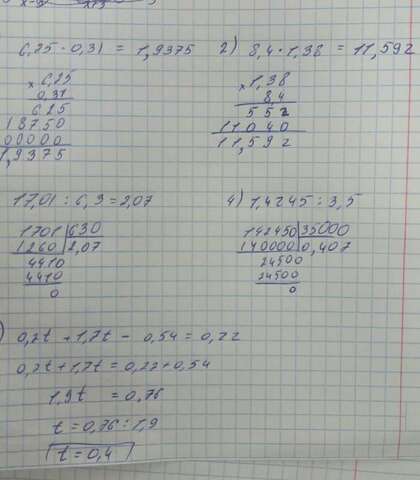 6,25 · 0,31 = 1,9375
× 6,25
0,31
625
18750
00000
1,9375
2) 8,4 · 1,38 = 11,592
× 1,38
8,4
552
11040
11,592
17,01 : 6,3 = 2,07
1701 630
1260 2,07
4410
4410
0
4) 1,4245 : 3,5
142450 35000
140000 0,407
24500
24500
0
) 0,2t + 1,7t - 0,54 = 0,22
0,2t + 1,7t = 0,22 + 0,54
1,9t = 0,76
t = 0,76 : 1,9
t = 0,4